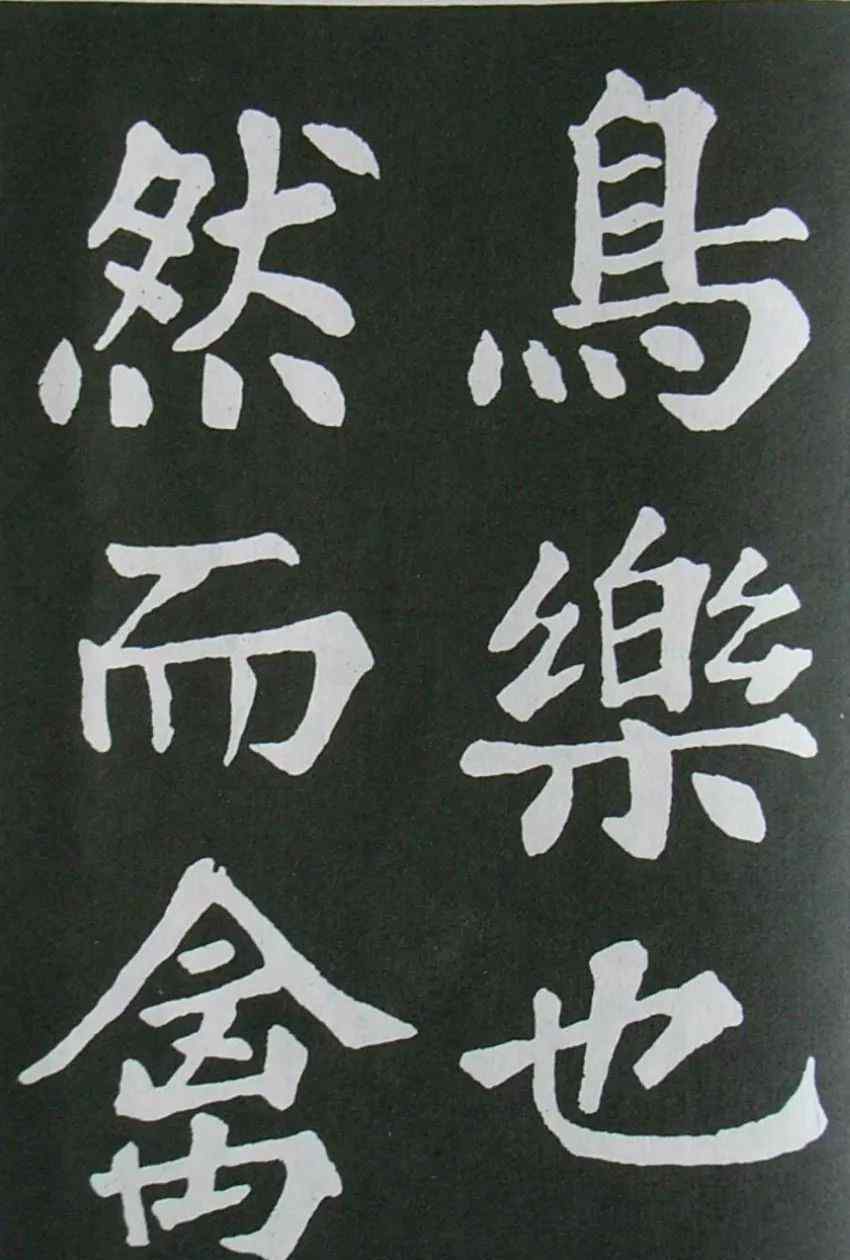 鳥樂也
然而禽